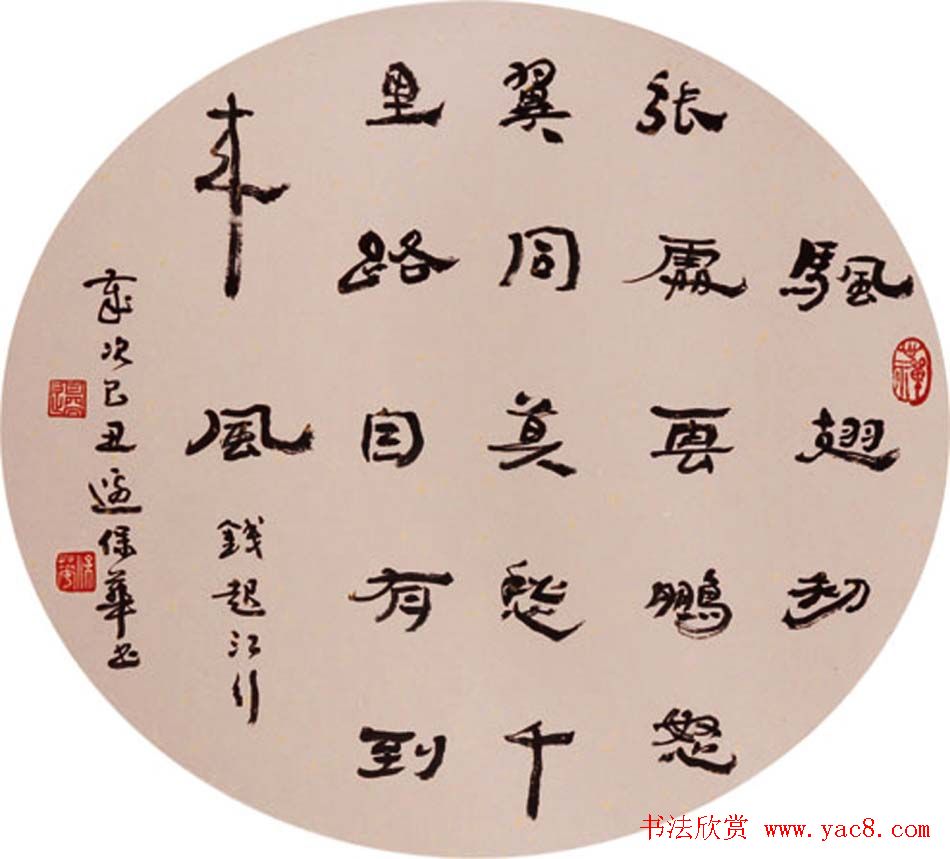 颿翅初
張處雲鵬怒
翼同莫愁千
里路自有到
來風
錢起江行
歲次己丑邊保華書
书法欣赏 www.yac8.com